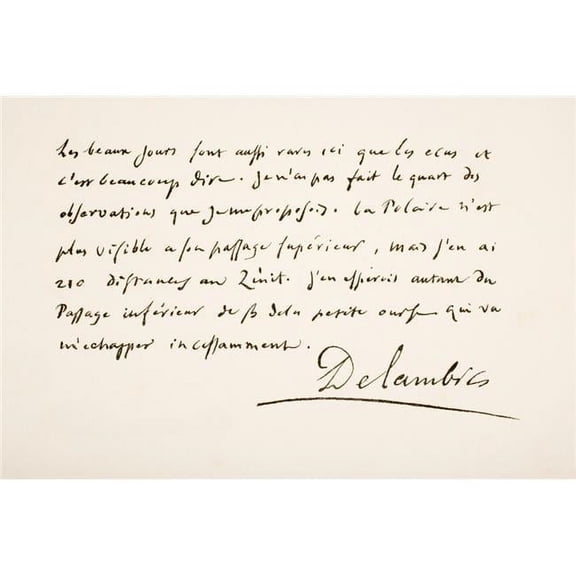 Les beaux jours sont aussi rares ici que les ecus et
c'est beaucoup dire. Je n'ai pas fait le quart des
observations que je me proposois. La Polaire n'est
plus visible a son passage supérieur, mais j'en ai
210 distances au Zénit. J'en espérois autant du
Passage inférieur de β de la petite ourse qui va
m'echapper incessamment.
Delambre